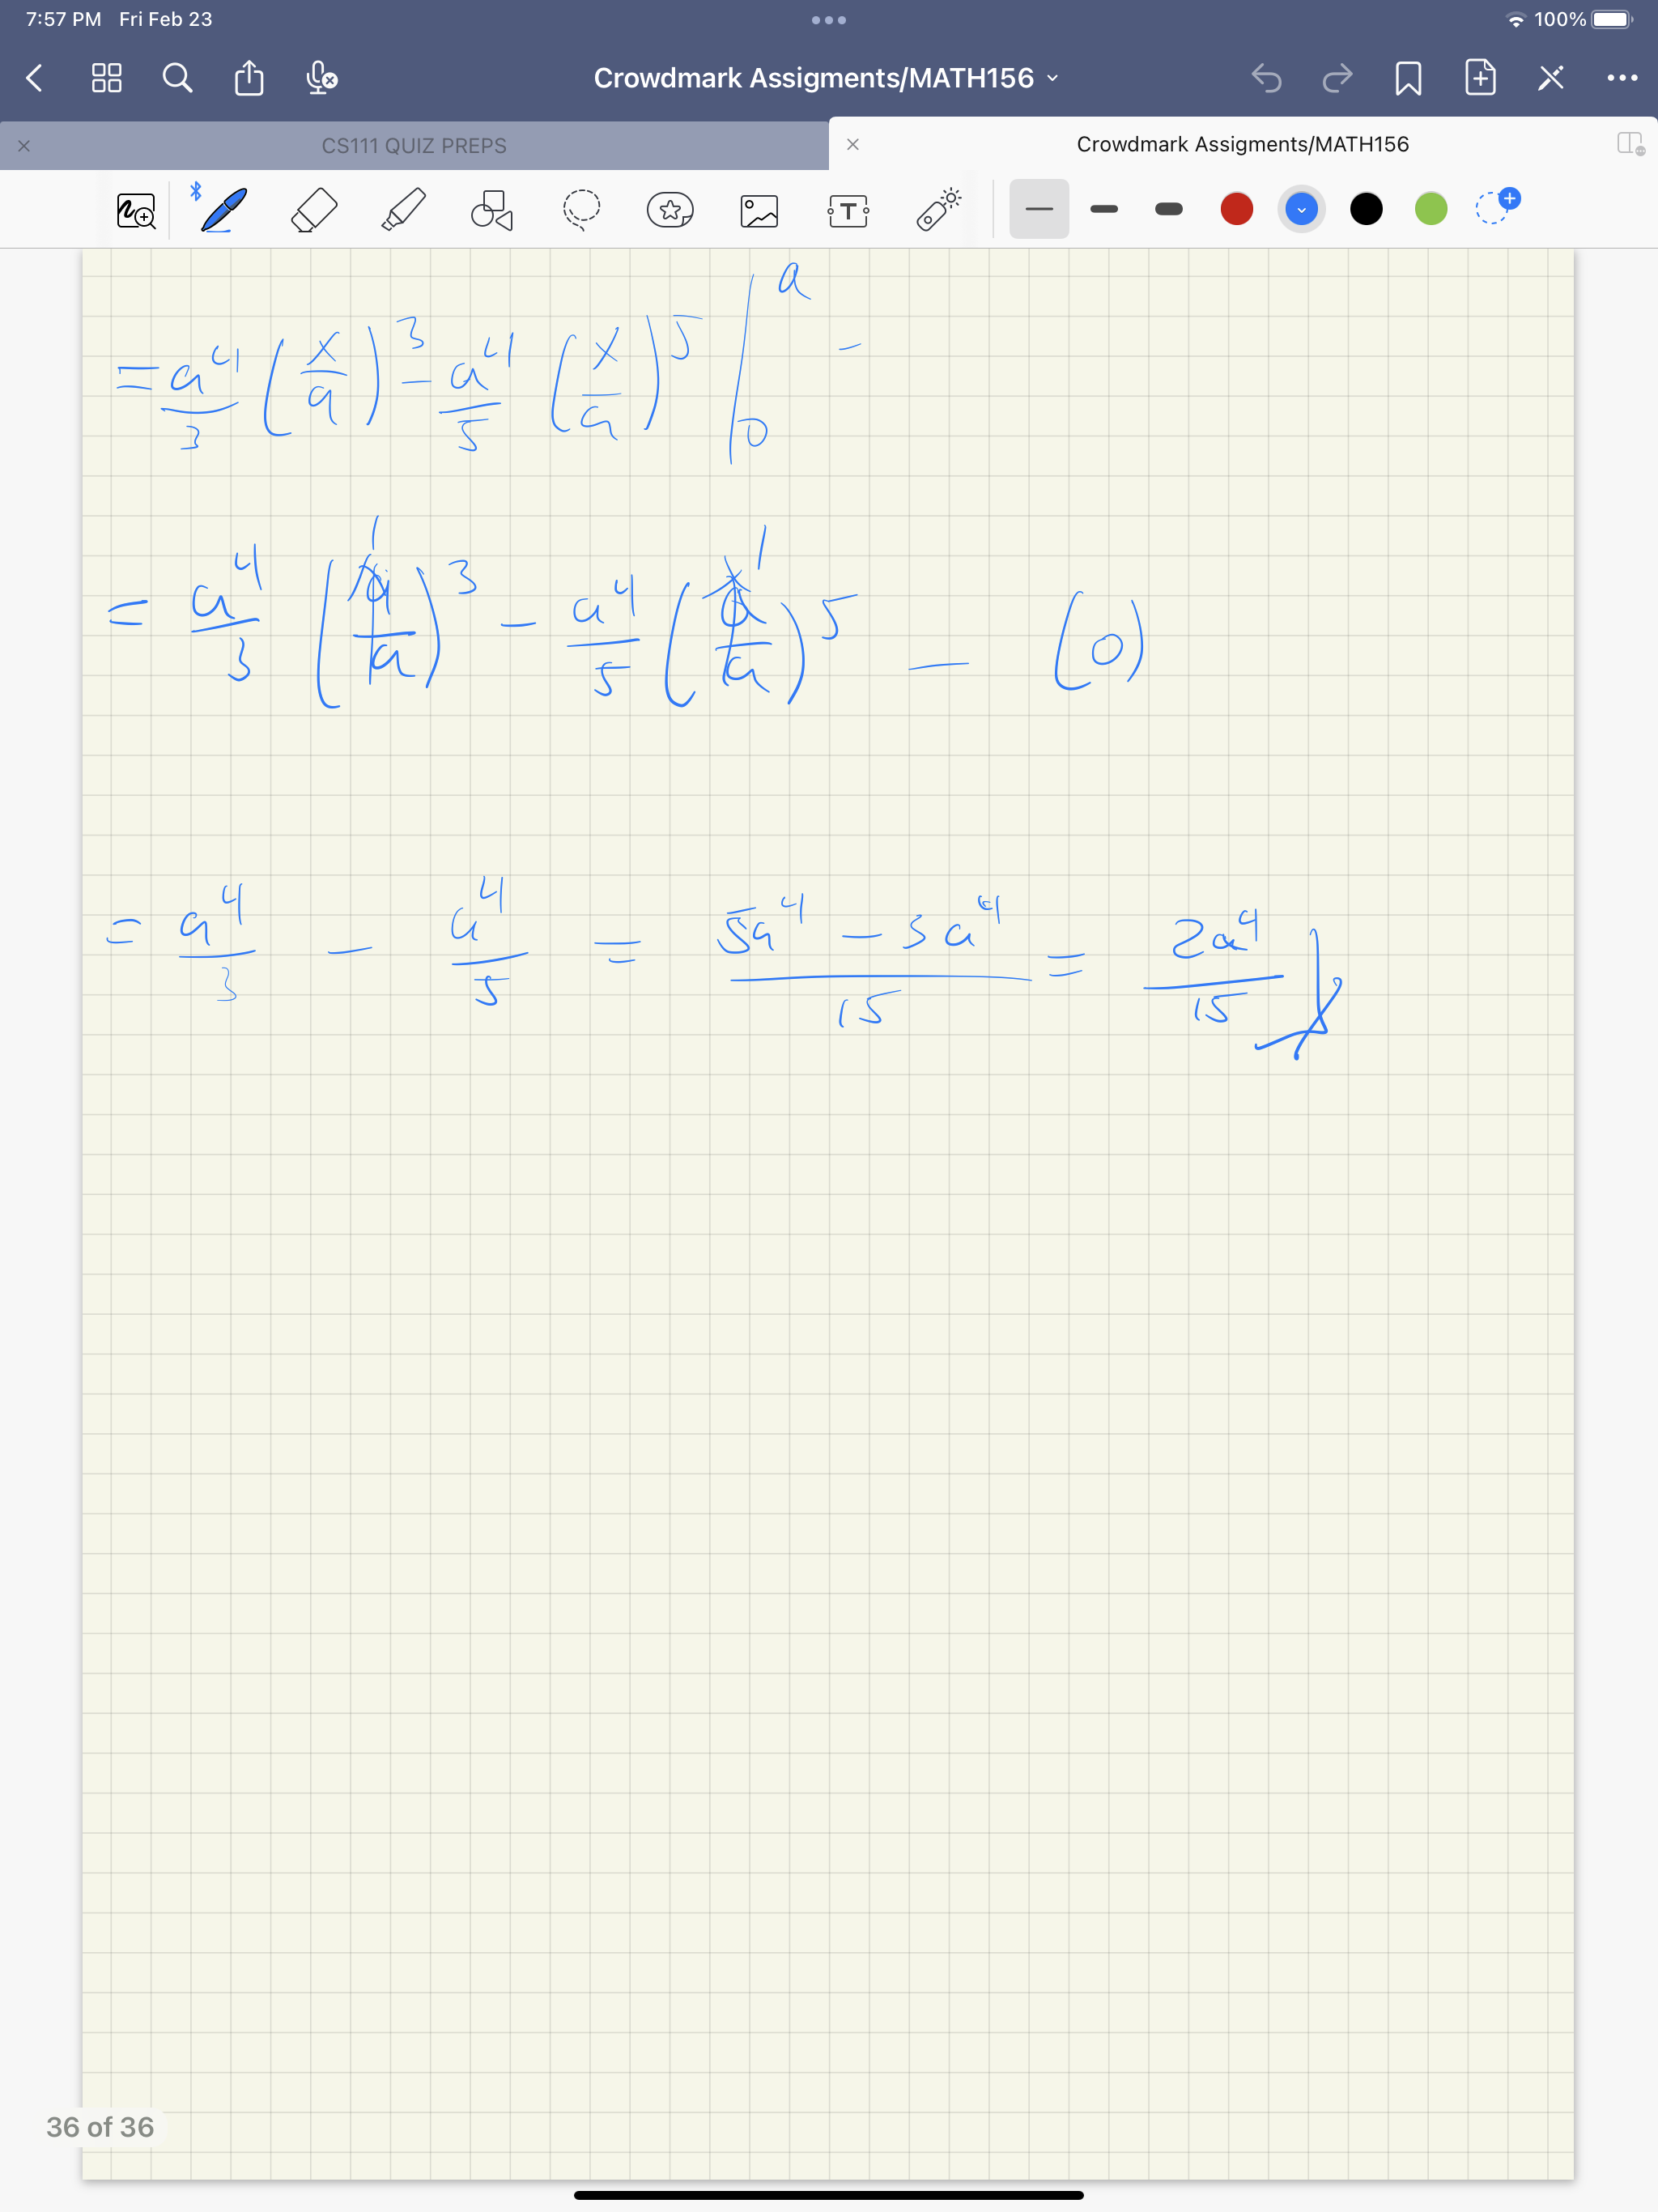 7:57 PM Fri Feb 23 100%
Crowdmark Assigments/MATH156
CS111 QUIZ PREPS Crowdmark Assigments/MATH156
T
= a^4/3 (x/a)^3 - a^4/5 (x/a)^5 |_0^a -
= a^4/3 (a/a)^3 1 - a^4/5 (a/a)^5 1 - (0)
= a^4/3 - a^4/5 = 5a^4 - 3a^4/15 = 2a^4/15
36 of 36